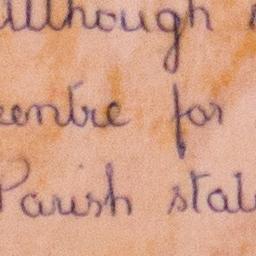 although
centre for
Parish stat